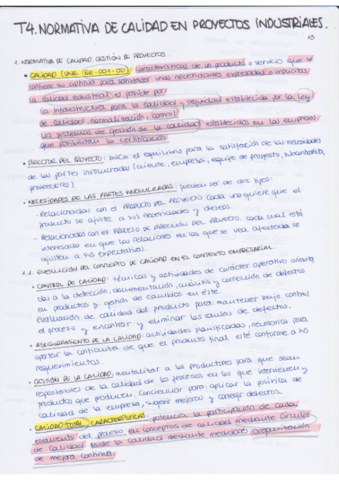 T4. NORMATIVA DE CALIDAD EN PROYECTOS INDUSTRIALES.
1. NORMATIVA DE CALIDAD. GESTIÓN DE PROYECTOS.
• CALIDAD (UNE 66-001-00): características de un producto o servicio que
le confiere su aptitud para satisfacer unas necesidades expresadas o implícitas
La calidad industrial es posible por
La infraestructura para la calidad y seguridad establecida por la Ley
de calidad, normalización, control
Los sistemas de gestión de la calidad establecidos en las empresas
que permiten la certificación.
• DIRECTOR DEL PROYECTO: busca el equilibrio para la satisfacción de las necesidades
de las partes involucradas (cliente, empresa, equipo de proyecto,
proveedores).
• NECESIDADES DE LAS PARTES INVOLUCRADAS: pueden ser de dos tipos:
- Relacionadas con el PRODUCTO DEL PROYECTO: cada uno quiere que el
producto se ajuste a sus necesidades y deseos.
- Relacionadas con el PROCESO DE DIRECCIÓN DEL PROYECTO: cada cual está
interesado en que las relaciones en las que se vea afectado se
ajusten a sus expectativas.
1.1. EVOLUCIÓN DEL CONCEPTO DE CALIDAD EN EL CONTEXTO EMPRESARIAL.
• CONTROL DE CALIDAD: técnicas y actividades de carácter operativo orienta
das a la detección, documentación, análisis y corrección de defectos
en productos y gestión de calidades en éste.
Evaluación de calidad del producto para: mantener bajo control
el proceso y encontrar y eliminar las causas de defectos.
• ASEGURAMIENTO DE LA CALIDAD: actividades planificadas, necesarias para
aportar la confianza de que el producto final esté conforme a lo
requerido.
• GESTIÓN DE LA CALIDAD: mentalizar a los productores para que sean
responsables de la calidad de los procesos en los que intervienen y
producto que producen. Concienciar para: aplicar la política de
calidad de la empresa, sugerir mejoras y corregir defectos.
• CALIDAD TOTAL CARACTERÍSTICAS: potencia la participación de cada
elemento del proceso en conceptos de calidad mediante círculos
de calidad. Mide la calidad mediante medidores
de mejora continua.